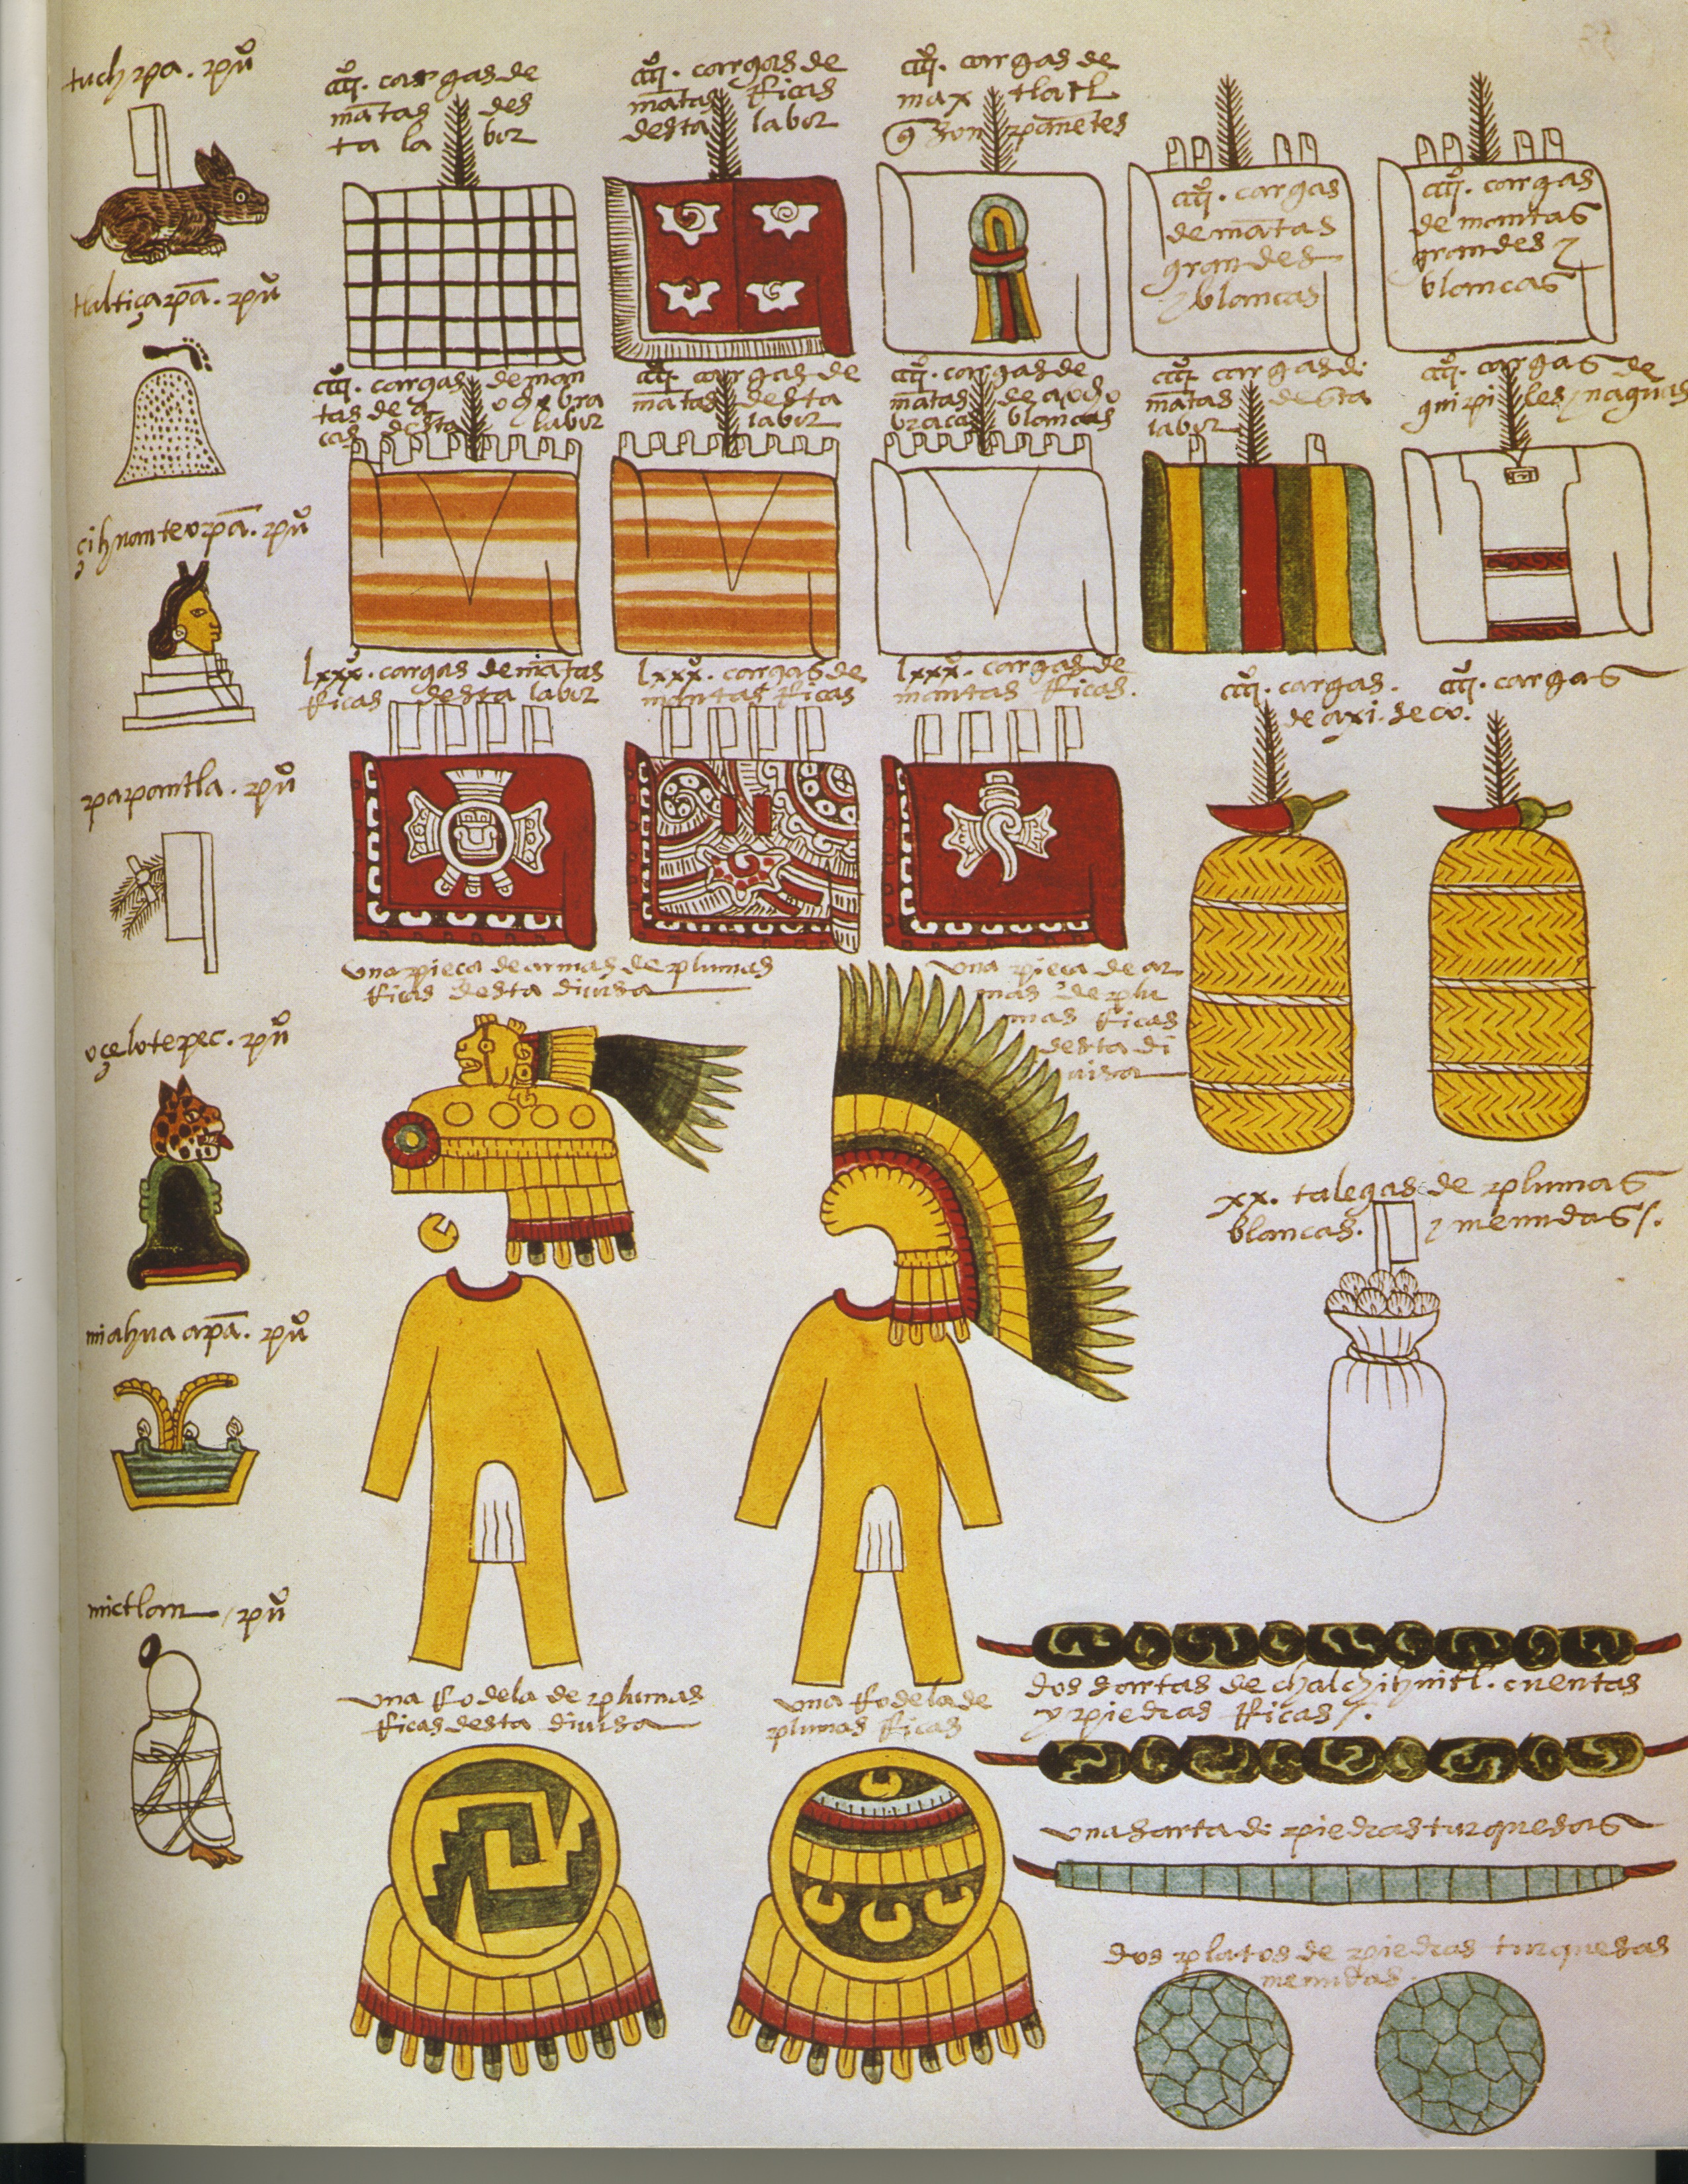 tuchpa. pũo
tlaltiçapã. pũo
çihuanteopã. pũo
papantla. pũo
oçelotepec. pũo
miahua apã. pũo
mictlan pũo
cargas de
mãtas des
ta la bor
cargas de
mãtas Ricas
desta labor
cargas de
max tlatl
q̃ son pãnetes
cargas
de mãtas
grandes
y blancas
cargas
de mantas
grandes y
blancas
cargas de man
tas de a ocho bra
cas desta labor
cargas de
mãtas desta
labor
cargas de
mãtas de a ocho
braças blancas
cargas de
mãtas desta
labor
cargas de
guipiles y naguas
lxxx. cargas de mãtas
Ricas desta labor
lxxx. cargas de
mantas Ricas
lxxx. cargas de
mantas Ricas.
cargas.
de axi. seco.
cargas
una pieça de armas de plumas
Ricas desta diuisa
una pieça de ar
mas de plu
mas Ricas
desta di
uisa
xx. talegas de plumas
blancas. y menudas/.
una Rodela de plumas
Ricas desta diuisa
una Rodela de
plumas Ricas
dos sartas de chalchihuitl. cuentas
y piedras Ricas/.
una sarta de piedras turquesas
dos platos de piedras turquesas
menudas.